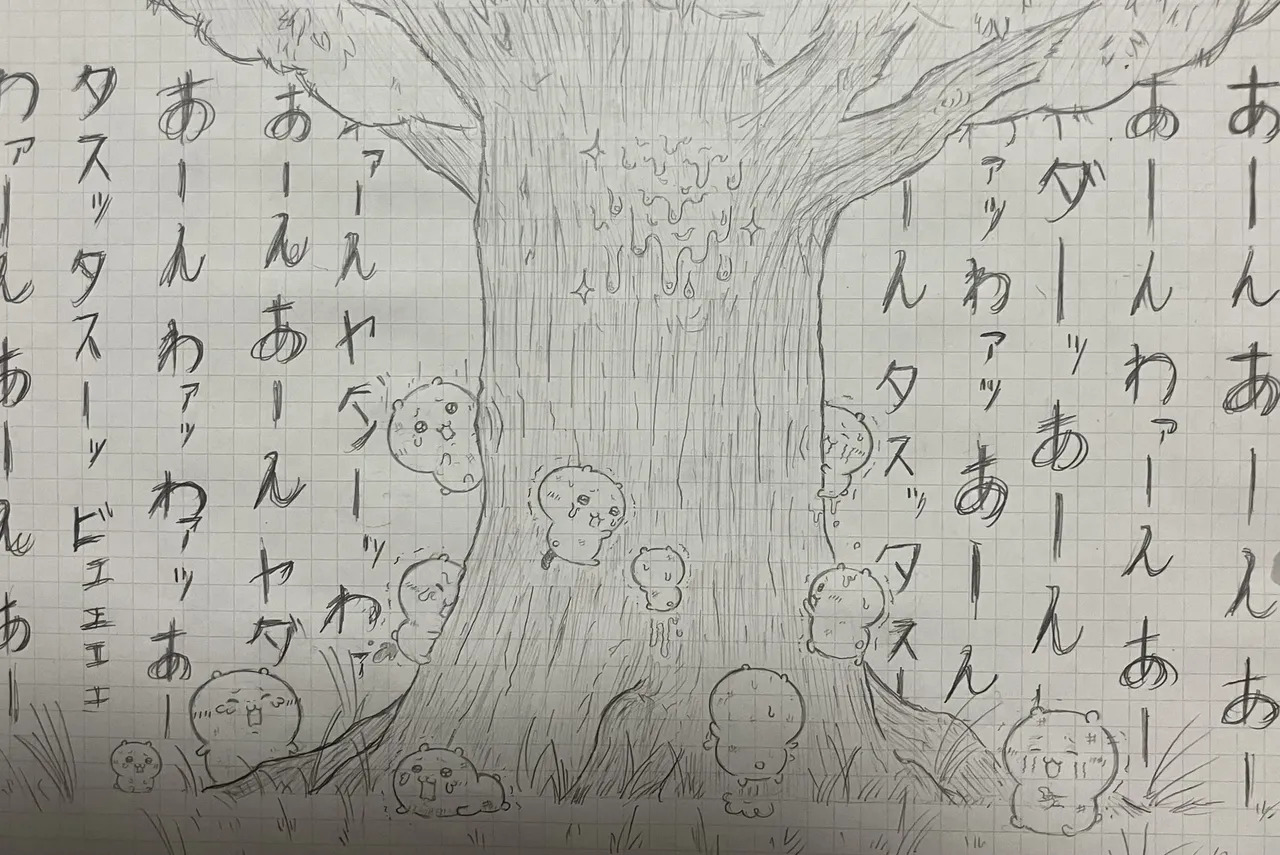 あーんあーんあー
あーんわァーんあー
ダーッあーん
ァッわァッあーん
ーんタスッタスー
ァーんヤダーッわァ
あーんあーんヤダ
あーんわァッわァッあー
タスッタスーッビェェェェ
わァーんあーんあー